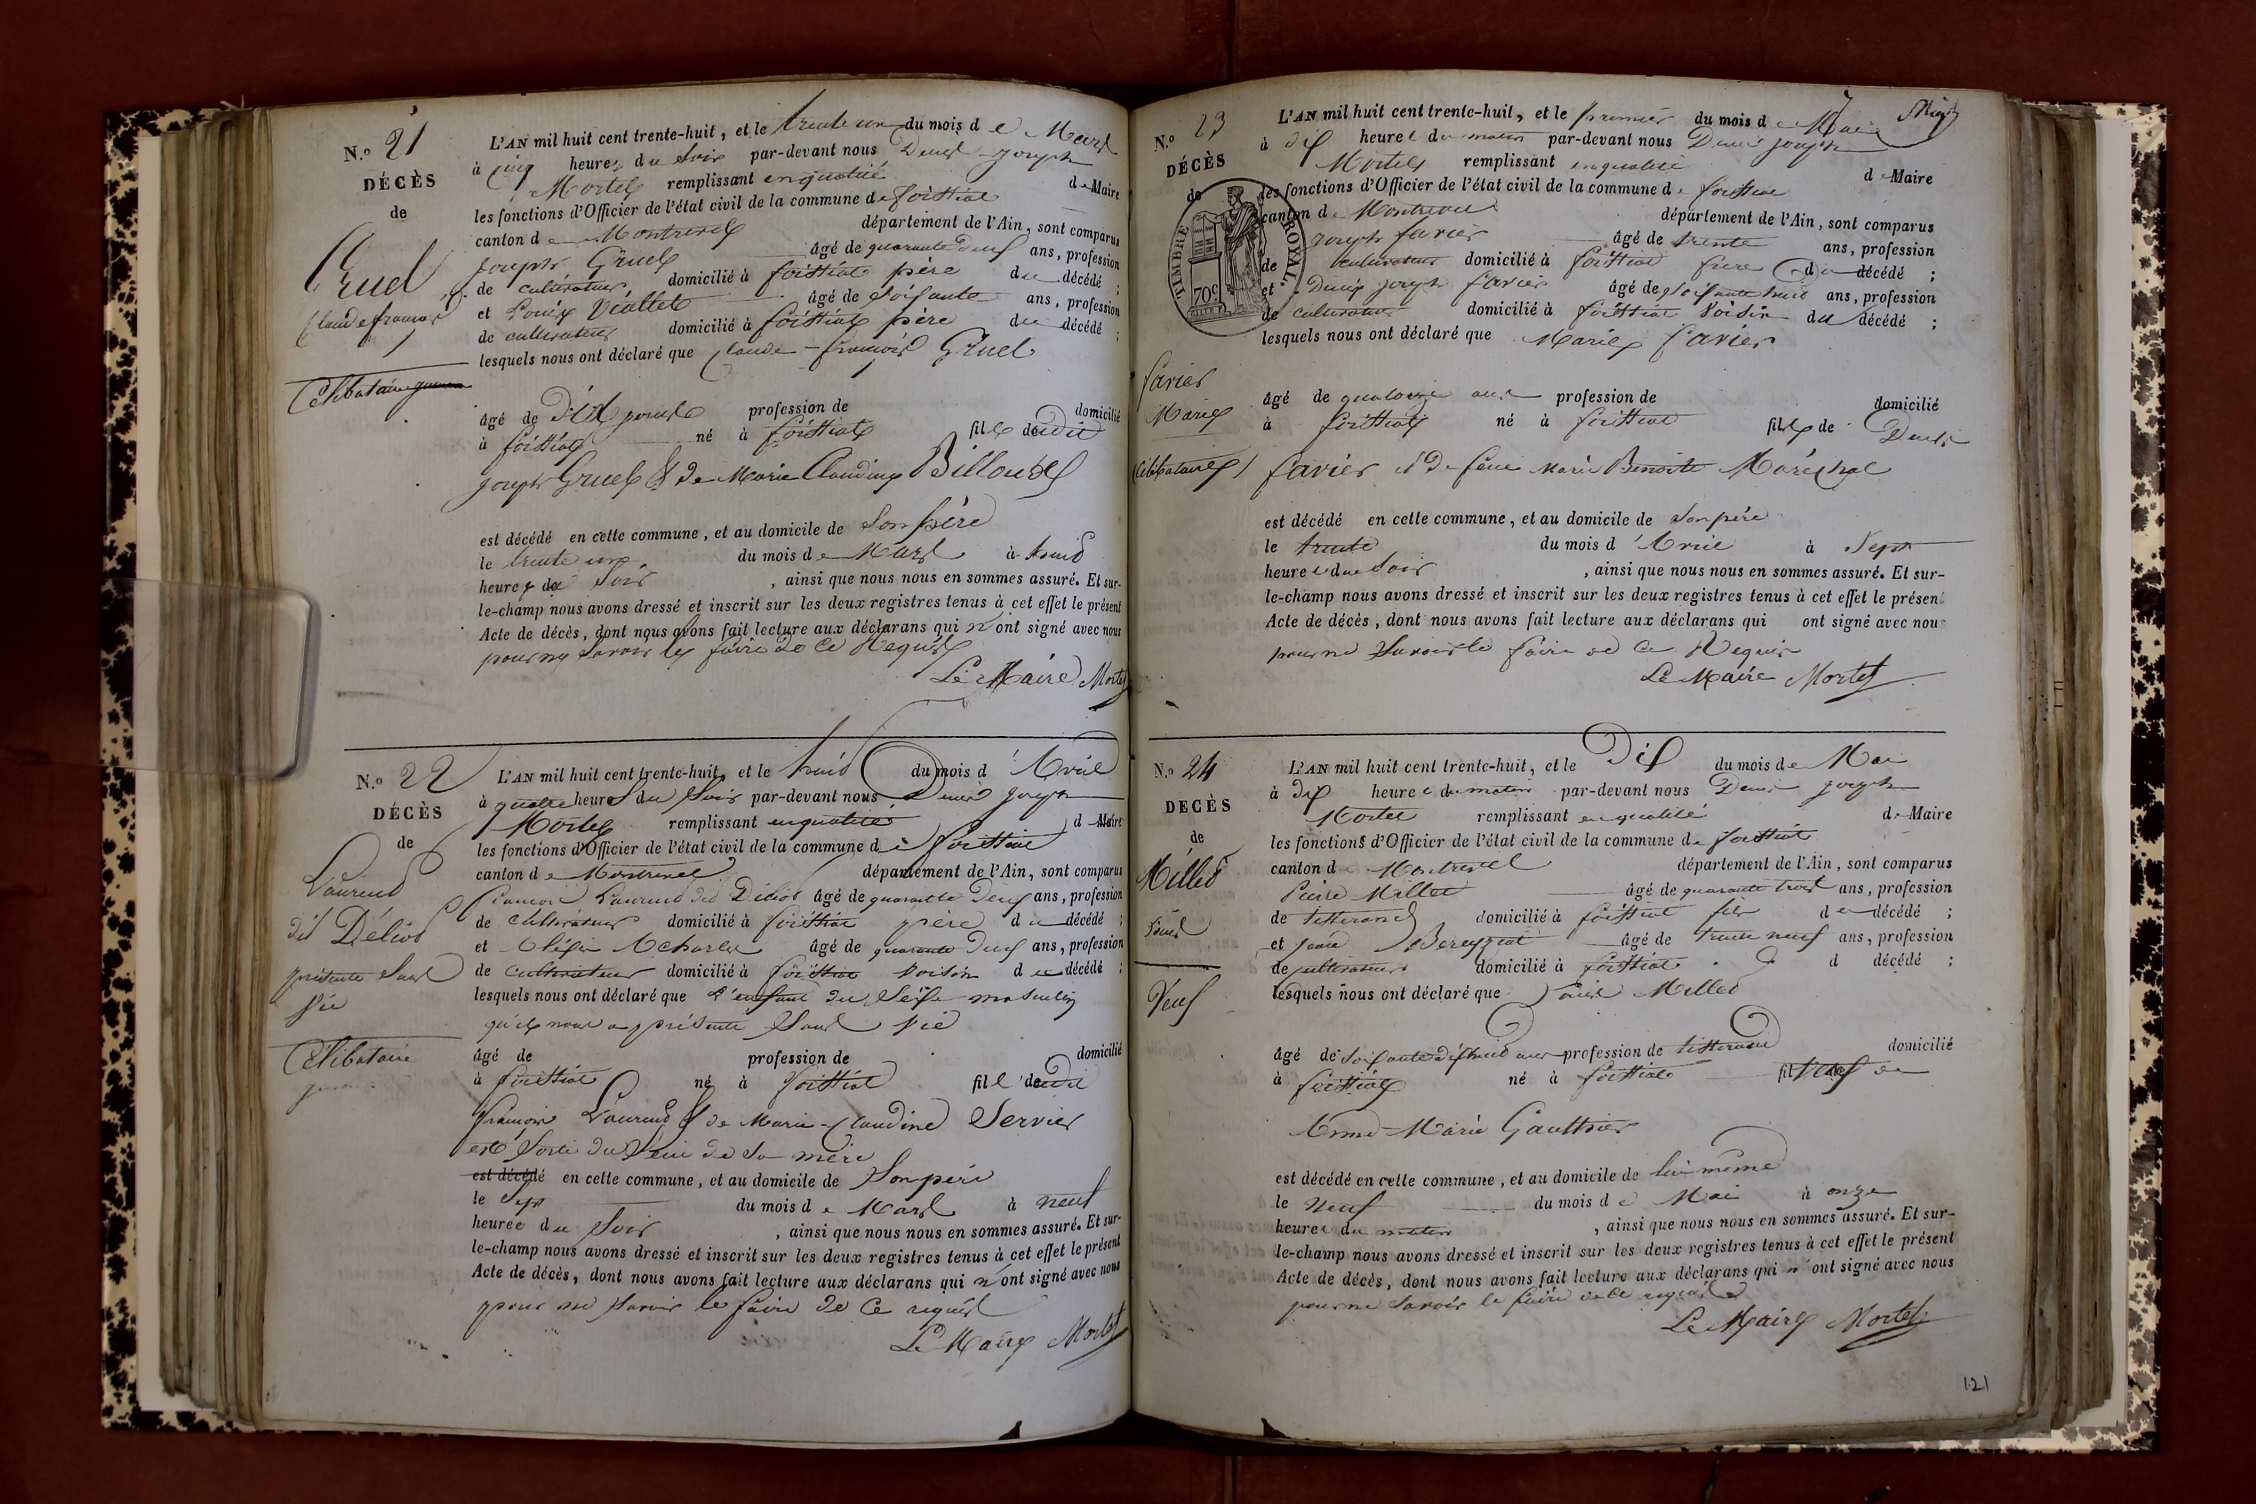 N.o 21
DÉCÈS
de
Gruel
Claude françois
Célibataire
L'AN mil huit cent trente-huit, et le trente un du mois d e Mars
à cinq heures du soir par-devant nous Denis Joseph
Mortel remplissant en qualité d e Maire
les fonctions d'Officier de l'état civil de la commune de foissiat
canton d e Montrevel département de l'Ain, sont comparus
Joseph Gruel âgé de quarante deux ans, profession
de cultivateur domicilié à foissiat père du décédé ;
et Louis Viallet âgé de soixante ans, profession
de cultivateur domicilié à foissiat père du décédé ;
lesquels nous ont déclaré que Claude-françois Gruel
âgé de dix jours profession de domicilié
à foissiat né à foissiat fils de dit
joseph Gruel & de Marie Claudine Billoud
est décédé en cette commune, et au domicile de son père
le trente un du mois d e Mars à huit
heures du soir , ainsi que nous nous en sommes assuré. Et sur-
le-champ nous avons dressé et inscrit sur les deux registres tenus à cet effet le présent
Acte de décès, dont nous avons fait lecture aux déclarans qui n'ont signé avec nous
pour ne savoir le faire de ce Requis
Le Maire Mortel
N.o 22
DÉCÈS
de
Laurend
dit Déliot
présenté sans
vie
Célibataire
L'AN mil huit cent trente-huit, et le huit du mois d'Avril
à quatre heures du soir par-devant nous Denis joseph
Mortel remplissant en qualité d Maire
les fonctions d'Officier de l'état civil de la commune d e foissiat
canton d e Montrevel département de l'Ain, sont comparus
françois Laurend dit Déliot âgé de quarante deux ans, profession
de cultivateur domicilié à foissiat père du décédé ;
et âgé de quarante deux ans, profession
de cultivateur domicilié à foissiat voisin du décédé ;
lesquels nous ont déclaré que l'enfant du sexe masculin
qu'il nous a présenté sans vie
âgé de profession de domicilié
à foissiat né à foissiat fils de dit
françois Laurend & de Marie-Claudine Servier
est sorti du sein de sa mère
est décédé en cette commune, et au domicile de son père
le sept du mois d e Mars à neuf
heures du soir , ainsi que nous nous en sommes assuré. Et sur-
le-champ nous avons dressé et inscrit sur les deux registres tenus à cet effet le présent
Acte de décès, dont nous avons fait lecture aux déclarans qui n'ont signé avec nous
pour ne savoir le faire de ce requis
Le Maire Mortel
N.o 23
DÉCÈS
de
TIMBRE ROYAL
70c
favier
Marie
Célibataire
L'AN mil huit cent trente-huit, et le premier du mois d e Mai
à dix heures du matin par-devant nous Denis joseph
Mortel remplissant en qualité d e Maire
les fonctions d'Officier de l'état civil de la commune d e foissiat
canton d e Montrevel département de l'Ain, sont comparus
joseph favier âgé de trente ans, profession
de cultivateur domicilié à foissiat frère du décédé ;
et Denis joseph favier âgé de soixante huit ans, profession
de cultivateur domicilié à foissiat voisin du décédé ;
lesquels nous ont déclaré que Marie favier
âgé de quatorze ans profession de domicilié
à foissiat né à foissiat fille de Denis
favier et de feue Marie Benoite Maréchal
est décédé en cette commune, et au domicile de son père
le trente du mois d'Avril à sept
heures du soir , ainsi que nous nous en sommes assuré. Et sur-
le-champ nous avons dressé et inscrit sur les deux registres tenus à cet effet le présent
Acte de décès, dont nous avons fait lecture aux déclarans qui ont signé avec nous
pour ne savoir le faire de ce Requis
Le Maire Mortel
N.o 24
DECÈS
de
Millet
Louis
Veuf
L'AN mil huit cent trente-huit, et le Dix du mois d e Mai
à dix heures du matin par-devant nous Denis joseph
Mortel remplissant en qualité d e Maire
les fonctions d'Officier de l'état civil de la commune d e foissiat
canton d e Montrevel département de l'Ain, sont comparus
Pierre Millet âgé de quarante trois ans, profession
de tisserand domicilié à foissiat fils du décédé ;
et Bereyziat âgé de trente neuf ans, profession
de cultivateur domicilié à foissiat d décédé ;
lesquels nous ont déclaré que Louis Millet
âgé de soixante dix huit ans profession de tisserand domicilié
à foissiat né à foissiat fil veuf de
Anne-Marie Gauthier
est décédé en cette commune, et au domicile de lui même
le neuf du mois d e Mai à onze
heures du matin , ainsi que nous nous en sommes assuré. Et sur-
le-champ nous avons dressé et inscrit sur les deux registres tenus à cet effet le présent
Acte de décès, dont nous avons fait lecture aux déclarans qui n'ont signé avec nous
pour ne savoir le faire de ce requis
Le Maire Mortel
121